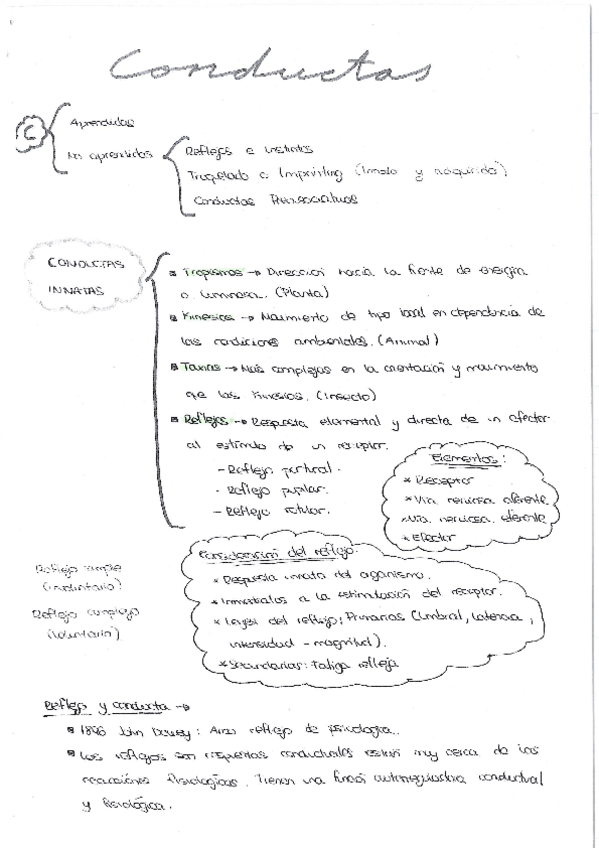 Conductas
C
Aprendidas
No aprendidas
Reflejos e instintos
Troquelado o Imprinting (Innato y adquirido)
Conductas
CONDUCTAS
INNATAS
Tropismos → Dirección hacia la fuente de energía
o luminosa. (Planta)
Kinesias → Movimiento de tipo local en dependencia de
las condiciones ambientales. (Animal)
Taxias → Más complejas en la orientación y movimiento
que las Kinesias. (Insecto)
Reflejos → Respuesta elemental y directa de un efector
al estímulo de un receptor.
- Reflejo postural.
- Reflejo pupilar.
- Reflejo rotular.
Elementos:
* Receptor
* Vía nerviosa aferente
* Vía nerviosa eferente
* Efector
Consideración del reflejo.
* Respuesta innata del organismo.
* Inmediatos a la estimulación del receptor.
* Leyes del reflejo: Primarias (Umbral, Latencia,
intensidad - magnitud).
* Secundarias: Fatiga refleja
Reflejo simple
(involuntario)
Reflejo complejo
(voluntario)
Reflejo y conducta →
1896 John Dewey: Arco reflejo de psicología.
Los reflejos son respuestas conductuales están muy cerca de las
reacciones fisiológicas. Tienen una función autorreguladora conductual
y fisiológica.